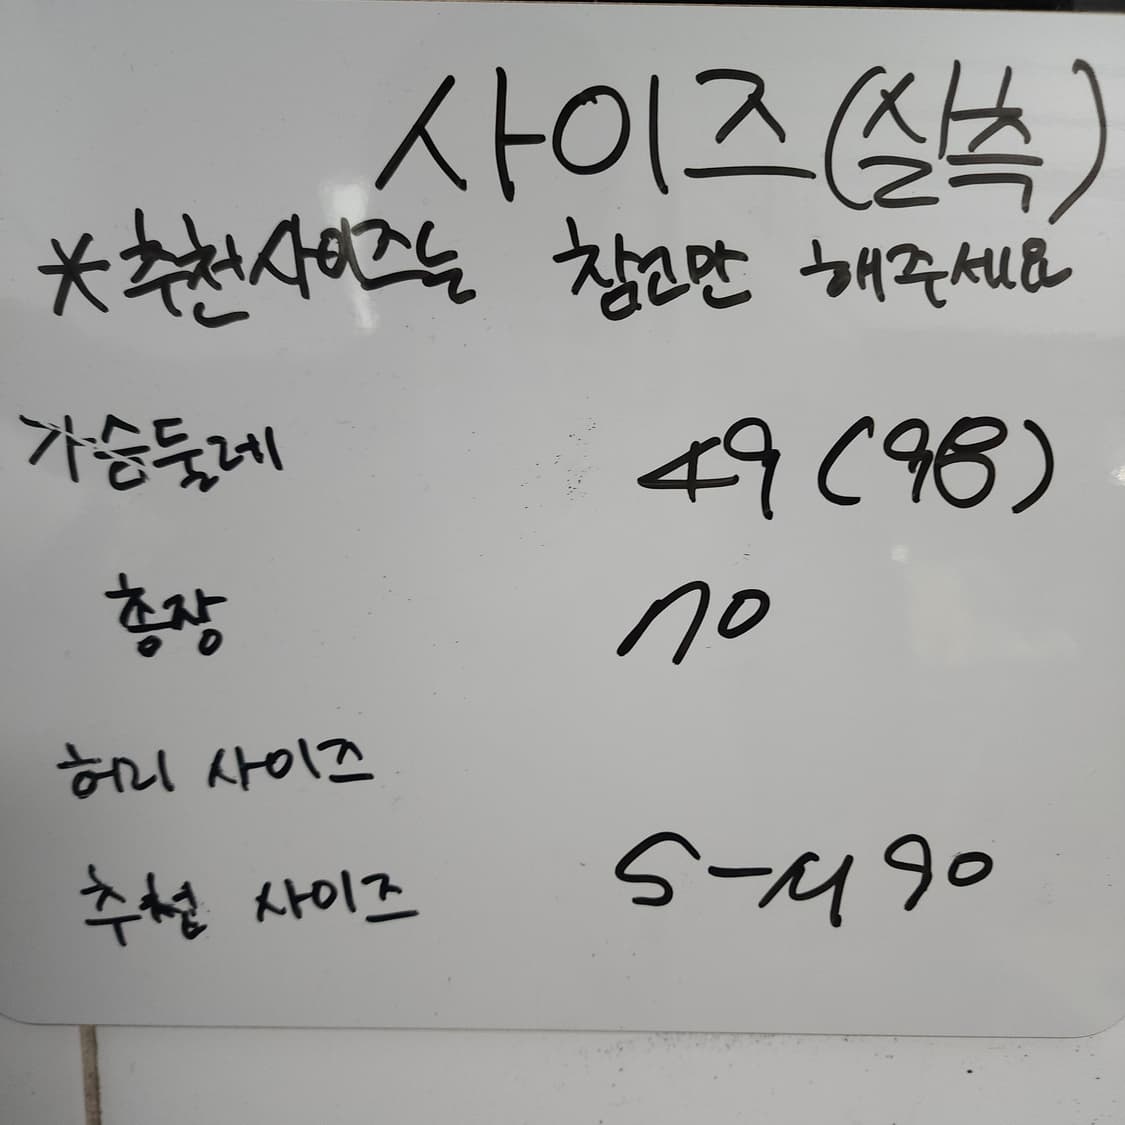 사이즈(실측)
*추천사이즈는 참고만 해주세요
가슴둘레 49(98)
총장 70
허리 사이즈
추천 사이즈 S-M 90